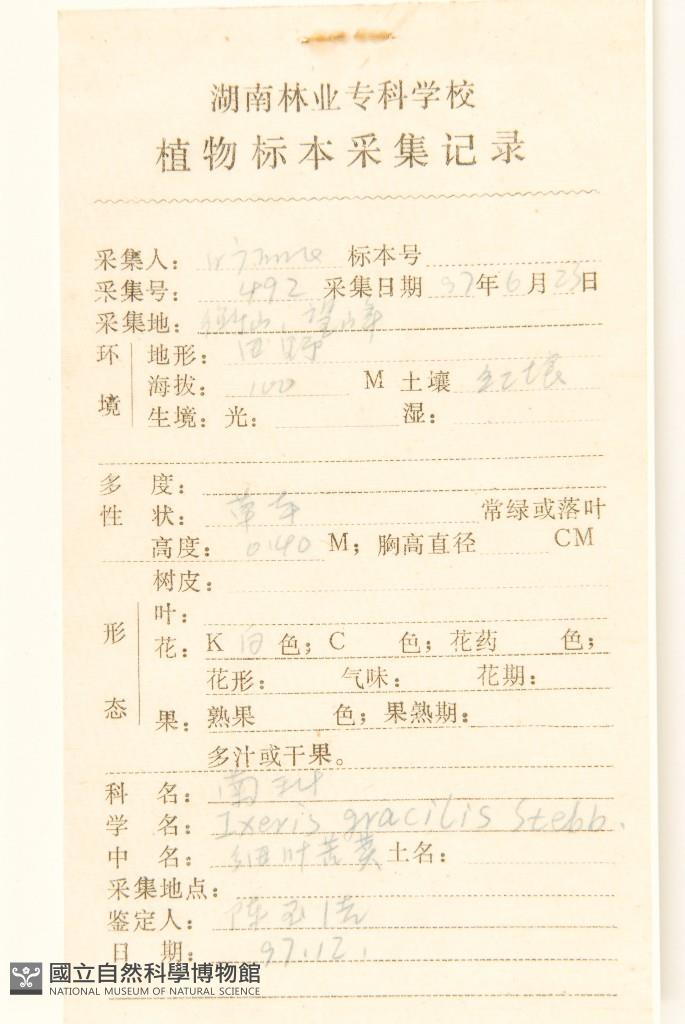 湖南林业专科学校
植物标本采集记录
采集人： 标本号
采集号： 492 采集日期 97年6月23日
采集地：
环境 地形： 田野
海拔： 100 M 土壤 红壤
生境：光： 湿：
多 度：
性 状： 草本 常绿或落叶
高度： 0.40 M；胸高直径 CM
形态 树皮：
叶：
花：K 白 色；C 色；花药 色；
花形： 气味： 花期：
果：熟果 色；果熟期：
多汁或干果。
科 名： 菊科
学 名： Ixeris gracilis Stebb.
中 名： 细叶苦荬 土名：
采集地点：
鉴定人： 陈
日 期： 97.12.
國立自然科學博物館
NATIONAL MUSEUM OF NATURAL SCIENCE